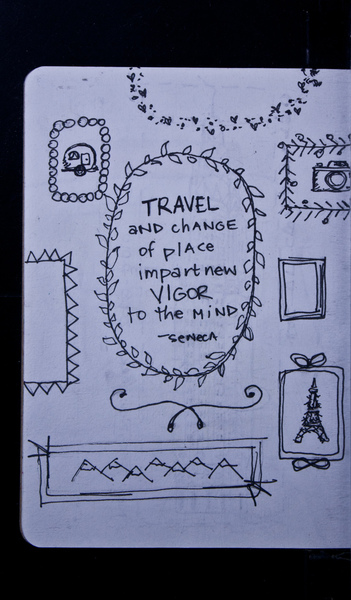 TRAVEL
AND CHANGE
of place
impart new
VIGOR
to the MIND
-SENECA